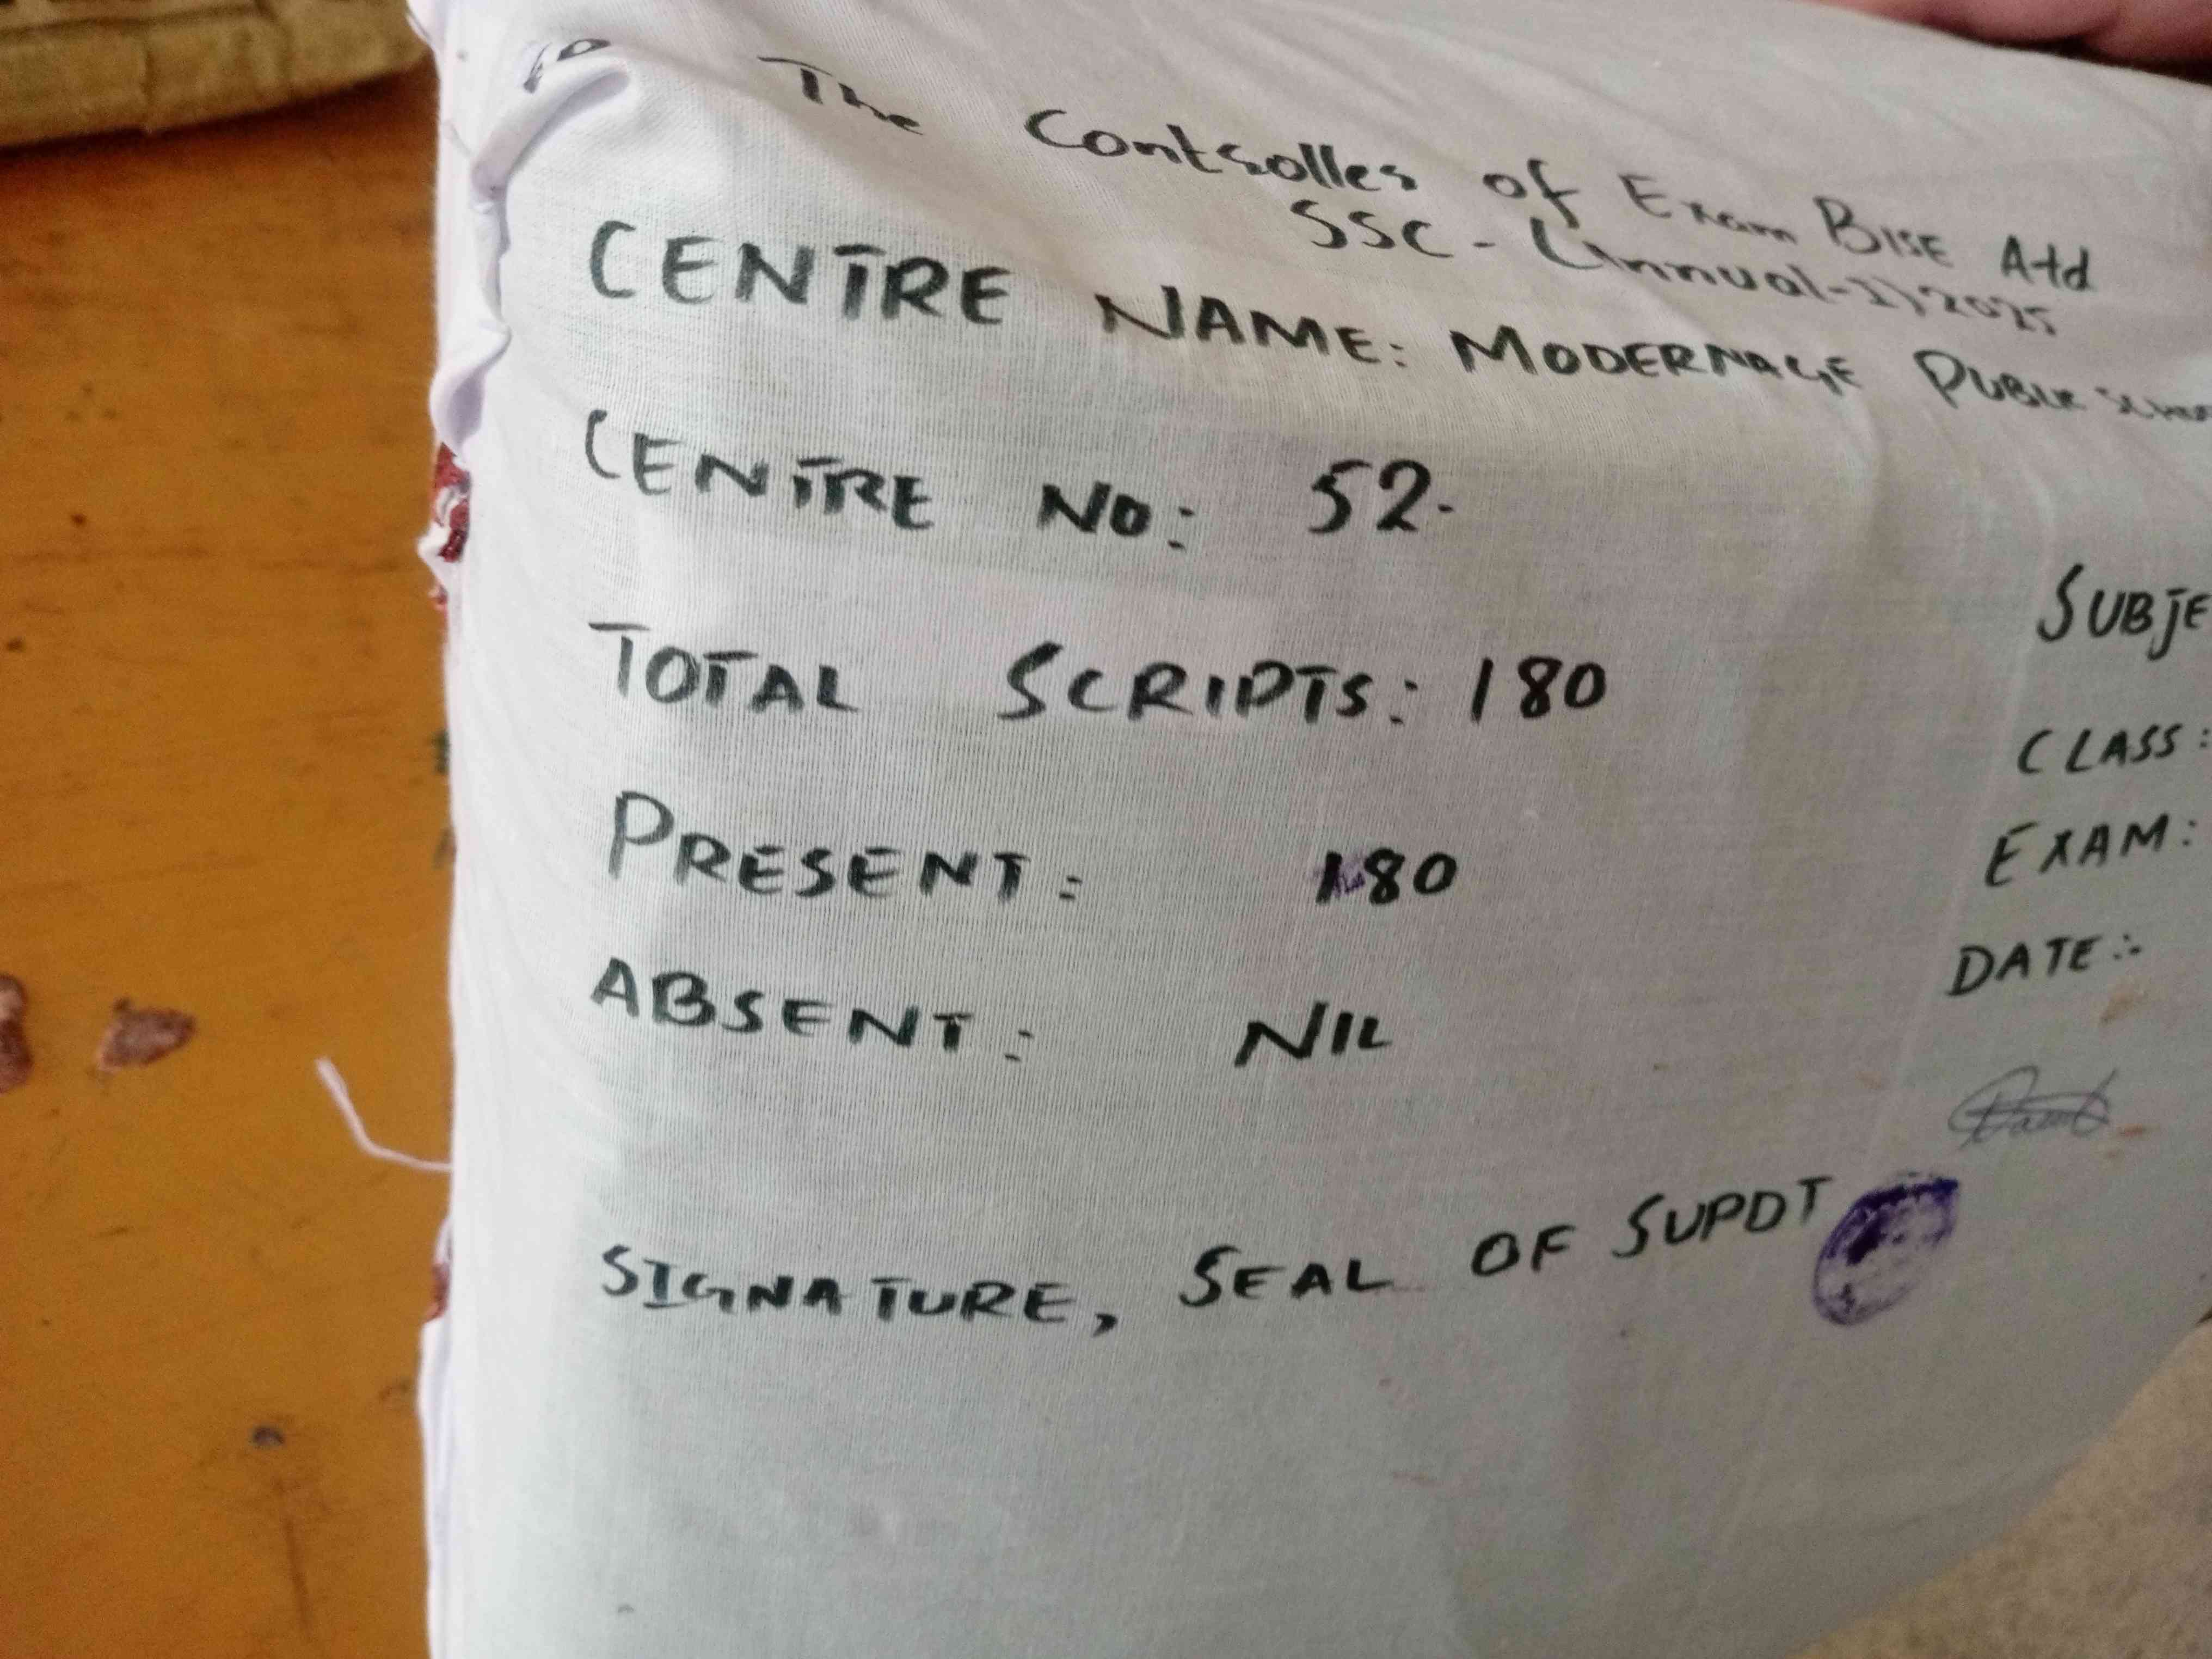 To The Controller of Exam BISE Atd
SSC - (Annual-I) 2025
CENTRE NAME: MODERNAGE PUBLIC SCHOOL
CENTRE NO: 52.
TOTAL SCRIPTS: 180
PRESENT: 180
ABSENT: NIL
SIGNATURE, SEAL OF SUPDT
SUBJE
CLASS:
EXAM:
DATE:-